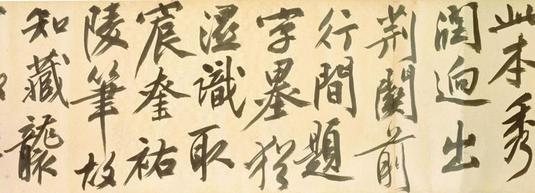 此本秀
潤迥出
荆關前
行間題
字墨猶
濕識取
宸奎祐
陵筆故
知藏龍